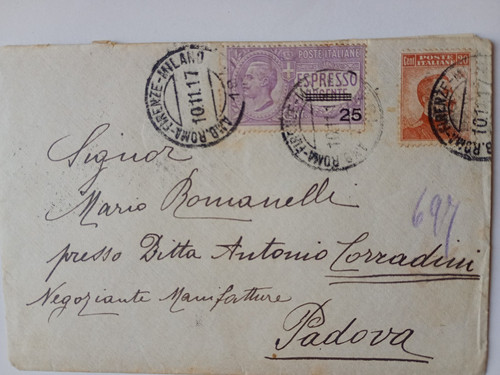 AMB. ROMA-FIRENZE-MILANO
10.11.17
POSTE ITALIANE
ESPRESSO
URGENTE
25
10.11.17
AMB. ROMA-FIRENZE
Cent 20
POSTE
ITALIANE
AMB. ROMA-FIRENZE
10.11.17
Signor
Mario Romanelli
presso Ditta Antonio Corradini
Negoziante Manifatture
Padova
697